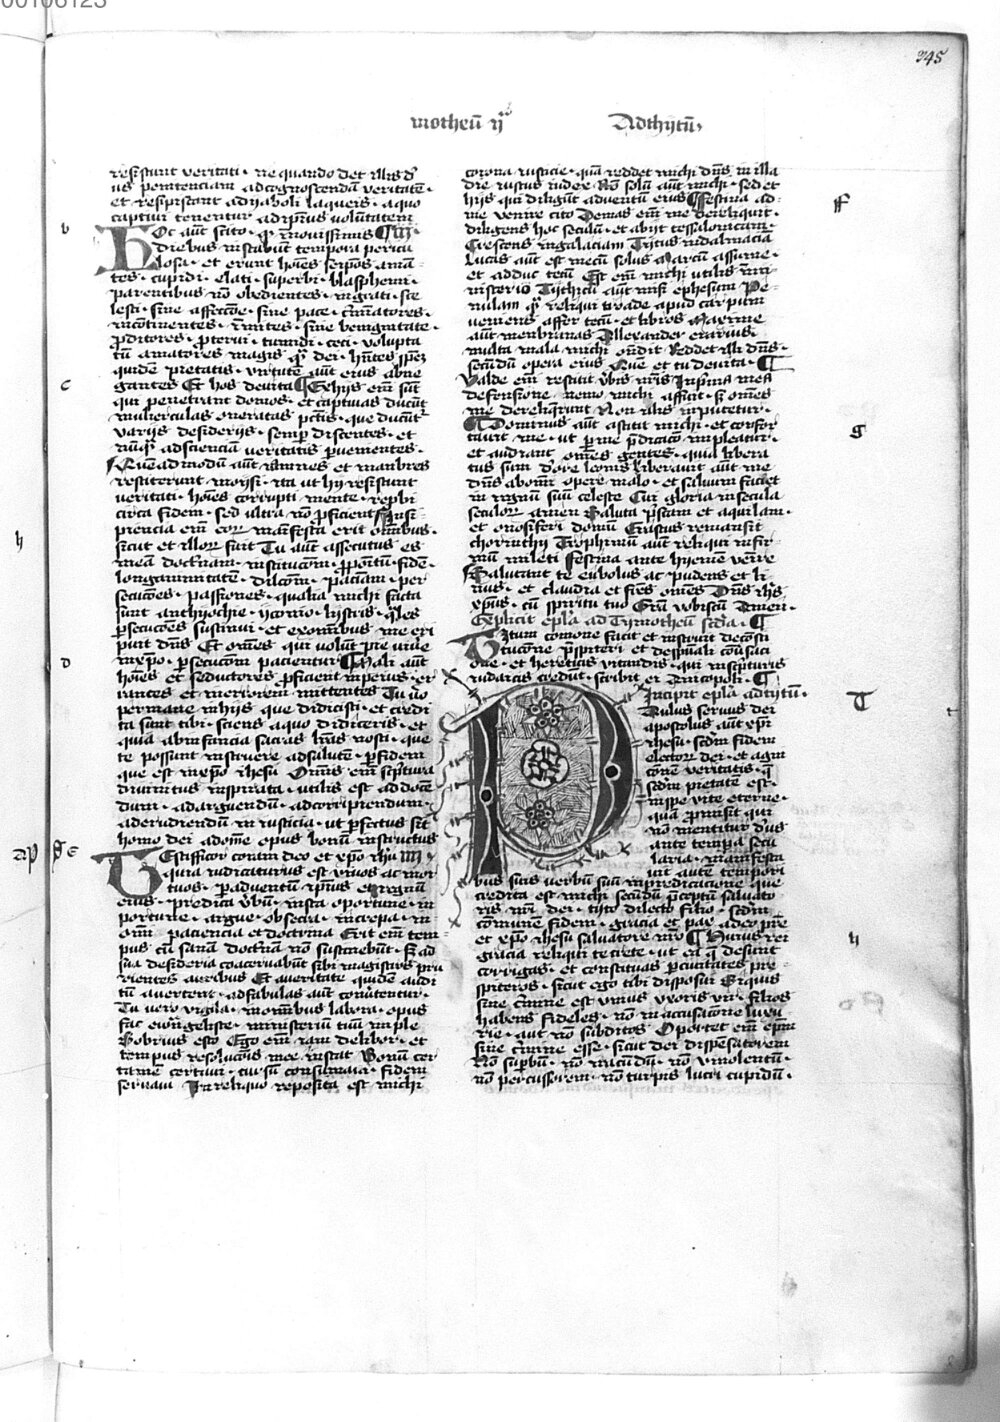 00106123
345
motheū ij
Ad thytū
resistunt veritati · ne quando det illis d̄
us penitenciam ad cognoscendū veritatē ·
et resipiscant a dyaboli laqueis · a quo
captiui tenentur ad ipsius volūtatem
Hoc aūt scito · q̄ in nouissimis iii
diebus instabūt tempora pericu
losa · et erunt hoīes seip̄os amā
tes · cupidi · elati · superbi · blasphemi ·
parentibus nō obedientes · ingrati · sce
lesti · sine affectiōe · sine pace · c̄minatores ·
incontinentes · inmites · sine benignitate ·
p̄ditores · p̄terui · tumidi · ceci · volupta
tū amatores magis q̄ dei · hn̄tes spēz
quidē pietatis · virtutē aūt eius abne
gantes Et hos deuita Ex hijs em̄ sūt
qui penetrant domos · et captiuas ducūt
mulierculas oneratas pctīs · que ducūt
varijs desiderijs · semp̄ discentes · et
nūq̄ ad scienciā veritatis p̄uenientes ·
Quēadmodū aūt iamnes et mambres
restiterunt moysi · ita ut hij resistunt
veritati · hoīes corrupti mente · rep̄bi
circa fidem · sed ultra nō p̄ficient Insi
piencia em̄ eor̄ manifesta erit om̄ibus ·
sicut et illor̄ fuit Tu aūt assecutus es
meā doctr̄nam · institucōm · p̄positū · fidē ·
longanimitatē · dilcōm · paciam · per
secucōes · passiones · qualia michi facta
sunt anthijochie · yconio · lystris · q̄les
p̄secucōes sustinui · et ex om̄ibus me eri
puit dn̄s Et om̄es qui volūt pie viuē
in xp̄o · p̄secucōem pacientur Mali aūt
hoīes et seductores p̄ficient in peius · er
rantes et in errorem mittentes Tu ū̄o
permane in hijs que didicisti · et credi
ta sunt tibi · sciens a quo didiceris · et
quia ab infancia sacras lr̄as nosti · que
te possunt instruere ad salutē · p̄ fidem
que est in xp̄o ihesu Omīs em̄ scp̄tura
diuinitus inspirata · utilis est ad docē
dum · ad arguendū · ad corripiendum ·
ad erudiendū in iusticia · ut p̄fectus sit
homo dei ad om̄e opus bonū instructus
Testificor coram deo et xp̄o ihū iiii
qui a iudicaturus est viuos ac mor
tuos · p̄ aduentū ip̄ius et regnū
eius · predica v̄bū · insta oportune · in
portune · argue · obsecra · increpa · in
om̄i paciencia et doctrina Erit em̄ tem
pus cū sanā doctr̄nā nō sustinebūt · s̄ ad
sua desideria coaceruabūt sibi magistros pru
rientes auribus Et a veritate quidē audi
tū auertent · ad fabulas aūt conūtentur ·
Tu vero vigila · in om̄ibus labora · opus
fac ewāngeliste · ministeriū tuū imple
Sobrius esto Ego em̄ iam delibor · et
tempus resolucōis mee instat Bonū cer
tamē certaui · cursū consummaui · fidem
seruaui In reliquo reposita est michi
corona iusticie · quā reddet michi dn̄s in illa
die iustus iudex Nō solū aūt michi · sed et
hijs qui diligūt aduentū eius Festina ad
me venire cito Demas em̄ me dereliquit ·
diligens hoc seculū · et abijt tessalonicam ·
Crescens in galaciam Tytus in dalmaciā
Lucas aūt est mecū solus Marcū assume ·
et adduc tecū Est em̄ michi utilis in mi
nisterio Tythicū aūt misi ephesum Pe
nulam q̄ reliqui troade apud carpum
veniens affer tecū · et libros Maxime
aūt menbranas Allexander erarius ·
multa mala michi ondit Reddet illi dn̄s ·
secūdū opera eius Quē et tu deuita ·
Valde em̄ restitit v̄bis nr̄is In prima mea
defensione · nemo michi affuit · s̄ om̄es
me dereliquerunt Non illis imputetur ·
Dominus aūt astitit michi · et confor
tauit me · ut per me p̄dicacō impleatur ·
et audiant om̄es gentes · quia libera
tus sum d̄ ore leonis Liberauit aūt me
dn̄s ab om̄i opere malo · et saluum faciet
in regnū suū celeste Cui gloria in secula
seculor̄ amen Saluta p̄scam et aquilam ·
et onosiferi domū Erastus remansit
chorinthij Trophimū aūt reliqui infir
mū mileti Festina ante hyemē venire
Salutant te eubolus ac pudens et li
nus · et claudia et fr̄es om̄es Dn̄s ihs̄
xp̄us · cū spiritu tuo Grā vobiscū Amen ·
Explicit epl̄a ad Tymotheū scd̄a ·
Tytum comone facit et instruit de cōsti
tucōne p̄sbiteri et de sp̄uali cōuersaci
one · et hereticis vitandis · qui in scp̄turis
iudaicis credūt · scribit ex Nicopoli ·
Incipit epl̄a ad tytū ·
Paulus seruus dei
apostolus aūt xp̄i
ihesu · scd̄m fidem
elector̄ dei · et agni
cōnē veritatis · q̄
scd̄m pietatē est ·
in spe vite eterne ·
quā p̄misit qui
nō mentitur d̄us
ante tempora secu
laria · manifesta
uit autē tempori
bus suis verbū suū in predicacione que
credita est michi secūdū p̄ceptū saluato
ris nr̄i dei · tyto dilecto filio · scd̄m
comūnē fidem · gracia et pax a deo pr̄e
et xp̄o ihesu saluatore nr̄o Huius rei
gracia reliqui te crete · ut ea q̄ desunt
corrigas · et constituas p̄ ciuitates pre
spiteros · sicut ego tibi disposui Si quis
sine c̄mine est vnius vxoris vir · filios
habens fideles · nō in accusacione luxu
rie · aut nō subditos Oportet em̄ ep̄m
sine c̄mine esse · sicut dei dispensatorem
Nō sup̄bū · nō iracūdū · nō vinolentū ·
nō percussorem · nō turpis lucri cupidū ·
b
c
h
d
e
f
g
T